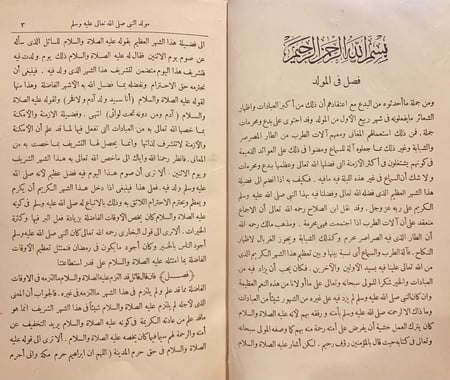 بسم الله الرحمن الرحيم
فصل في المولد
ومن جملة ما أحدثوه من البدع مع اعتقادهم أن ذلك من أكبر العبادات واظهار
الشعائر ما يفعلونه في شهر ربيع الأول من المولد وقد احتوى على بدع ومحرمات
جملة. فمن ذلك استعمالهم المغاني ومعهم آلات الطرب من الطار المصرصر
والشبابة وغير ذلك مما جعلوه آلة للسماع ومضوا في ذلك على العوائد الذميمة
في كونهم يشتغلون في أكثر الأزمنة التي فضلها الله تعالى وعظمها ببدع ومحرمات
ولا شك أن السماع في غير هذه الليلة فيه ما فيه. فكيف به اذا انضم الى فضيلة
هذا الشهر العظيم الذي فضله الله تعالى وفضلنا فيه بهذا النبي صلى الله عليه وسلم
الكريم على ربه عز وجل. وقد نقل ابن الصلاح رحمه الله تعالى أن الاجماع
منعقد على أن آلات الطرب اذا اجتمعت فهي محرمة. ومذهب مالك رحمه الله
أن الطار الذي فيه الصراصر محرم وكذلك الشبابة ويجوز الغربال لاظهار
النكاح. فآلة الطرب والسماع أي نسبة بينها وبين تعظيم هذا الشهر الكريم الذي
من الله تعالى علينا فيه بسيد الأولين والآخرين. فكان يجب أن يزاد فيه من
العبادات والخير شكرا للمولى سبحانه وتعالى على ما أولانا من هذه النعم العظيمة
وان كان النبي صلى الله عليه وسلم لم يزد فيه على غيره من الشهور شيئا من العبادات
وما ذاك الا لرحمته صلى الله عليه وسلم بأمته ورفقه بهم لأنه عليه الصلاة والسلام
كان يترك العمل خشية أن يفرض على أمته رحمة منه بهم كما وصفه المولى سبحانه
وتعالى في كتابه حيث قال بالمؤمنين رؤف رحيم. لكن أشار عليه الصلاة والسلام
مولد النبي صلى الله تعالى عليه وسلم
٣
الى فضيلة هذا الشهر العظيم بقوله عليه الصلاة والسلام للسائل الذي سأله
عن صوم يوم الاثنين فقال له عليه الصلاة والسلام ذلك يوم ولدت فيه
فتشريف هذا اليوم متضمن لتشريف هذا الشهر الذي ولد فيه. فينبغي أن
نحترمه حق الاحترام ونفضله بما فضل الله به الأشهر الفاضلة وهذا منها
لقوله عليه الصلاة والسلام (أنا سيد ولد آدم ولا فخر) ولقوله عليه الصلاة
والسلام (آدم ومن دونه تحت لوائي) انتهى. وفضيلة الأزمنة والأمكنة
بما خصها الله تعالى به من العبادات التي تفعل فيها لما قد علم أن الأمكنة
والأزمنة لا تتشرف لذاتها وانما يحصل لها التشريف بما خصت به من
المعاني. فانظر رحمنا الله واياك الى ما خص الله تعالى به هذا الشهر الشريف
ويوم الاثنين. ألا ترى أن صوم هذا اليوم فيه فضل عظيم لأنه صلى الله
عليه وسلم ولد فيه. فعلى هذا فينبغي اذا دخل هذا الشهر الكريم أن يكرم
ويعظم ويحترم الاحترام اللائق به وذلك بالاتباع له صلى الله عليه وسلم في كونه
عليه الصلاة والسلام كان يخص الأوقات الفاضلة بزيادة فعل البر فيها وكثرة
الخيرات. ألا ترى الى قول البخاري رحمه الله تعالى كان النبي صلى الله عليه وسلم
أجود الناس بالخير وكان أجود ما يكون في رمضان فنمتثل تعظيم الأوقات
الفاضلة بما امتثله عليه الصلاة والسلام على قدر استطاعتنا
(فصل) فان قال قائل قد التزم عليه الصلاة والسلام ما التزمه في الأوقات
الفاضلة ما قد علم ولم يلتزم في هذا الشهر ما التزمه في غيره. فالجواب أن المعنى
الذي لأجله لم يلتزم عليه الصلاة والسلام شيئا في هذا الشهر الشريف انما هو
ما قد علم من عادته الكريمة في كونه عليه الصلاة والسلام يريد التخفيف عن
أمته والرحمة لهم سيما فيما كان يخصه عليه الصلاة والسلام. ألا ترى الى قوله عليه
الصلاة والسلام في حق حرم المدينة (اللهم ان ابراهيم حرم مكة واني أحرم